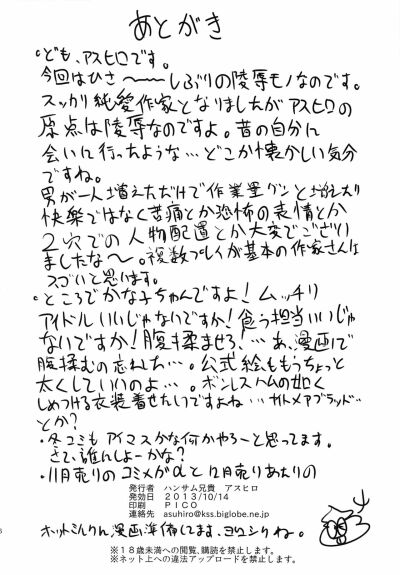 あとがき
ども、アスヒロです。
今回はひさ〜〜〜しぶりの陵辱モノなのです。
スッカリ純愛作家となりましたがアスヒロの
原点は陵辱なのですよ。昔の自分に
会いに行ったような…どこか懐かしい気分
ですね。
男が一人増えただけで作業量グンと増えたり
快楽ではなく苦痛とか恐怖の表情とか
2穴での人物配置とか大変でござり
ましたな〜。複数プレイが基本の作家さんは
スゴいと思います。
ところでかな子ちゃんですよ!ムッチリ
アイドルいいじゃないですか!食う担当いいじゃ
ないですか!腹揉ませろ!…あ、漫画で
腹揉むの忘れた…。公式絵ももうちょっと
太くしていいのよ…。ボンレスハムの如く
しめつける衣装着せたいですよね…
とか?
・冬コミもアイマスかな何かやろーと思ってます。
さて、誰んしよーかな?
・11月売りのコミメガαと12月売りあたりの
発行者 ハンサム兄貴 アスヒロ
発効日 2013/10/14
印刷 PICO
連絡先 asuhiro@kss.biglobe.ne.jp
ホットミルクん漫画準備してます、ヨロシクね。
※18歳未満への閲覧、購読を禁止します。
※ネット上への違法アップロードを禁止します。